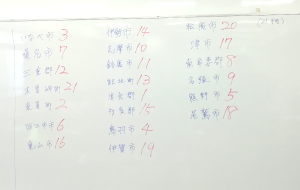 いなべ市 3
桑名市 7
三重郡 12
木曽岬町 21
東員町 2
四日市市 6
亀山市 16
伊勢市 14
志摩市 10
鈴鹿市 11
紀北町 13
度会郡 1
多気郡 15
鳥羽市 4
伊賀市 19
松阪市 20
津市 17
南牟婁郡 8
名張市 9
熊野市 5
尾鷲市 18